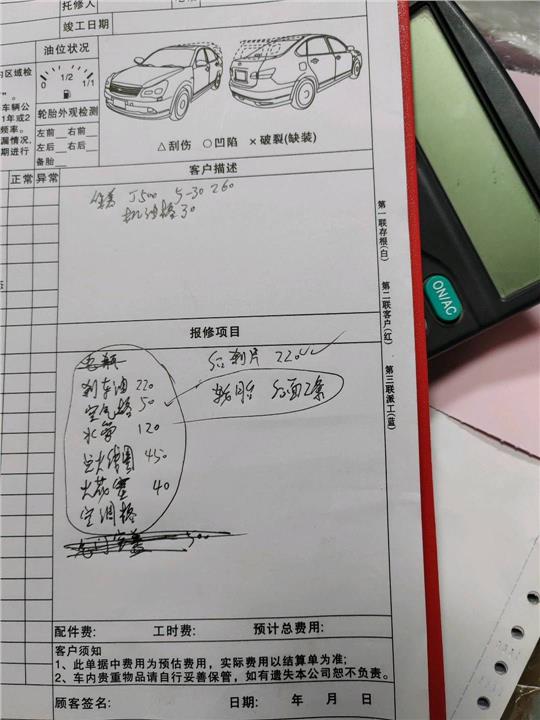 托修人
竣工日期
油位状况
0 1/2 1/1
轮胎外观检测
左前 右前
左后 右后
备胎
内区域检
车辆公
1年或2
频率。
漏情况,
期进行
正常 异常
△刮伤 ○凹陷 ×破裂(缺装)
客户描述
J500 5-30 260
机油格 30
报修项目
电瓶
刹车油 220
空气格 50
水管 120
点火线圈 450
火花塞 40
空调格
后刹片 220
轮胎 后面2条
第一联存根(白)
第二联客户(红)
第三联派工(蓝)
ON/AC
配件费: 工时费: 预计总费用:
客户须知
1、此单据中费用为预估费用,实际费用以结算单为准;
2、车内贵重物品请自行妥善保管,如有遗失本公司恕不负责。
顾客签名: 日期: 年 月 日